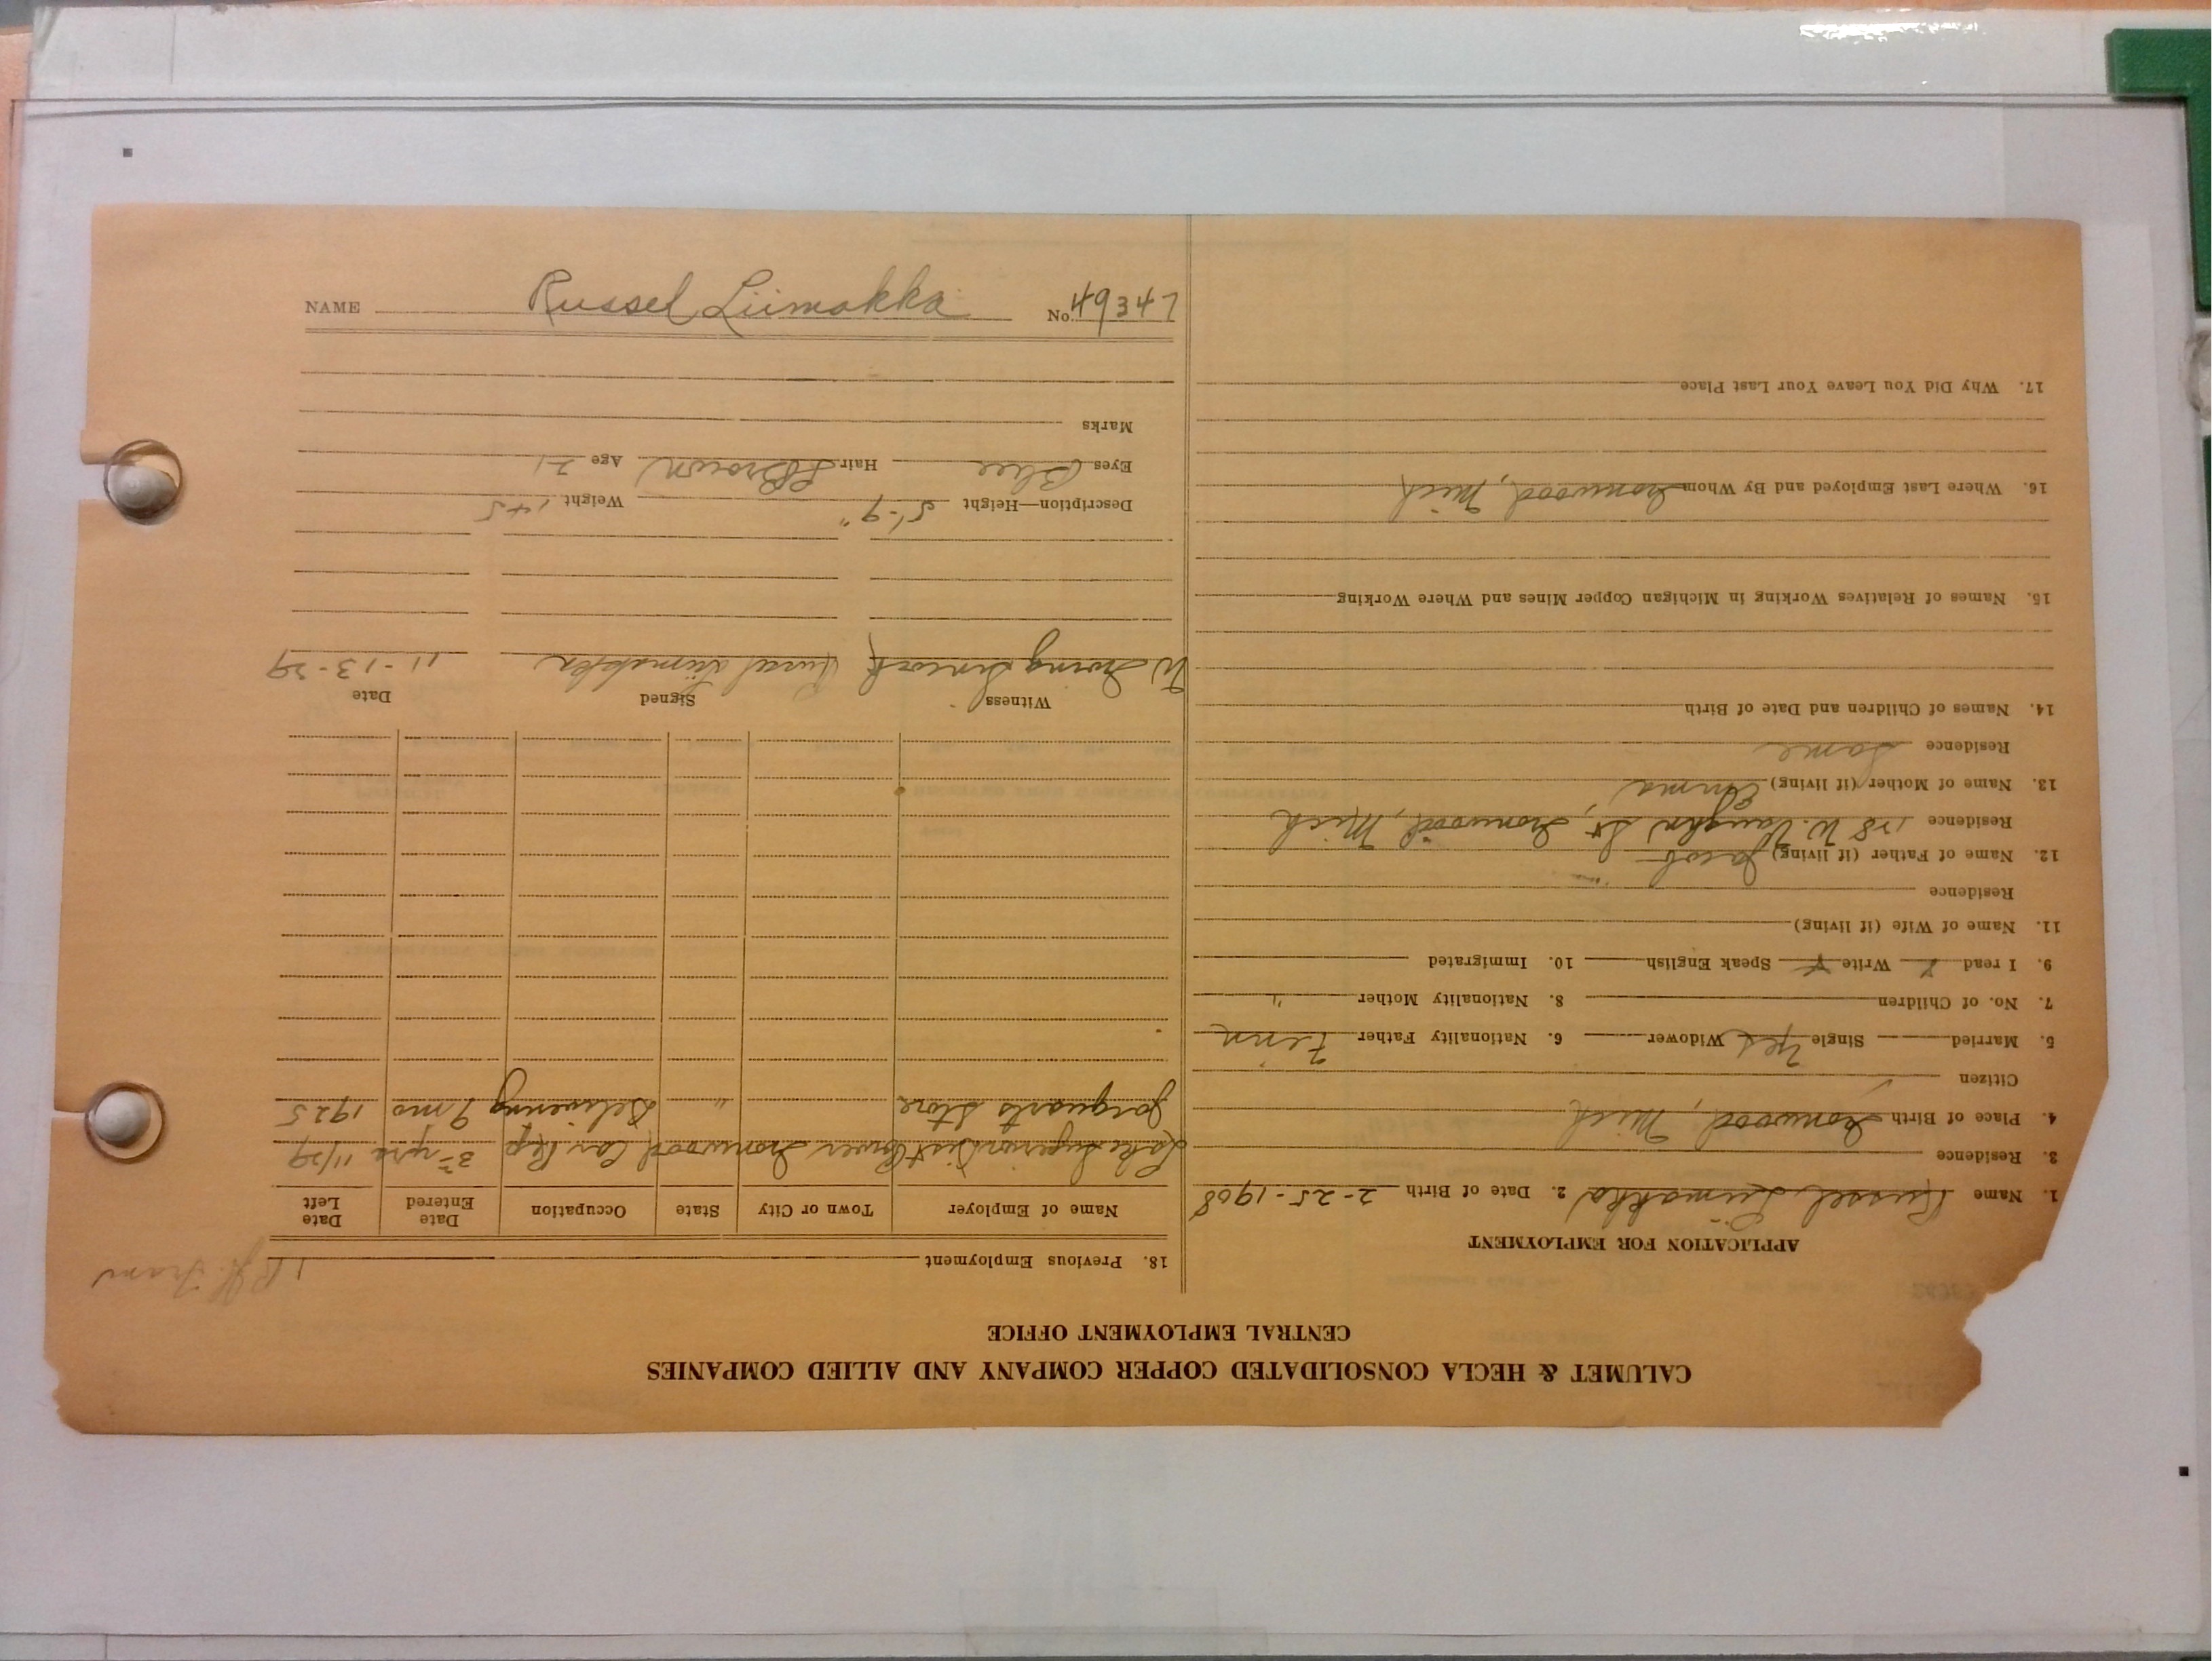 CALUMET & HECLA CONSOLIDATED COPPER COMPANY AND ALLIED COMPANIES
CENTRAL EMPLOYMENT OFFICE
APPLICATION FOR EMPLOYMENT
1. Name Russel Liimakka 2. Date of Birth 2-25-1908
3. Residence
4. Place of Birth Ironwood, Mich
Citizen
5. Married Single Yes Widower 6. Nationality Father Finn
7. No. of Children 8. Nationality Mother "
9. I read Write Speak English 10. Immigrated
11. Name of Wife (if living)
Residence
12. Name of Father (if living) Jacob
Residence 178 W. Vaughn St, Ironwood, Mich
13. Name of Mother (if living) Emma
Residence Same
14. Names of Children and Date of Birth
15. Names of Relatives Working in Michigan Copper Mines and Where Working
16. Where Last Employed and By Whom Ironwood, Mich
17. Why Did You Leave Your Last Place
18. Previous Employment
Name of Employer Town or City State Occupation Date Entered Date Left
Lake Superior Dist Power Ironwood Car Rep 3 yrs 11/29
Store " Delivering 9 mo 1925
Witness Signed Date
W Irving Russel Liimakka 11-13-29
Description—Height 5'-9" Weight 145
Eyes Blue Hair Brown Age 21
Marks
NAME Russel Liimakka No. 49347